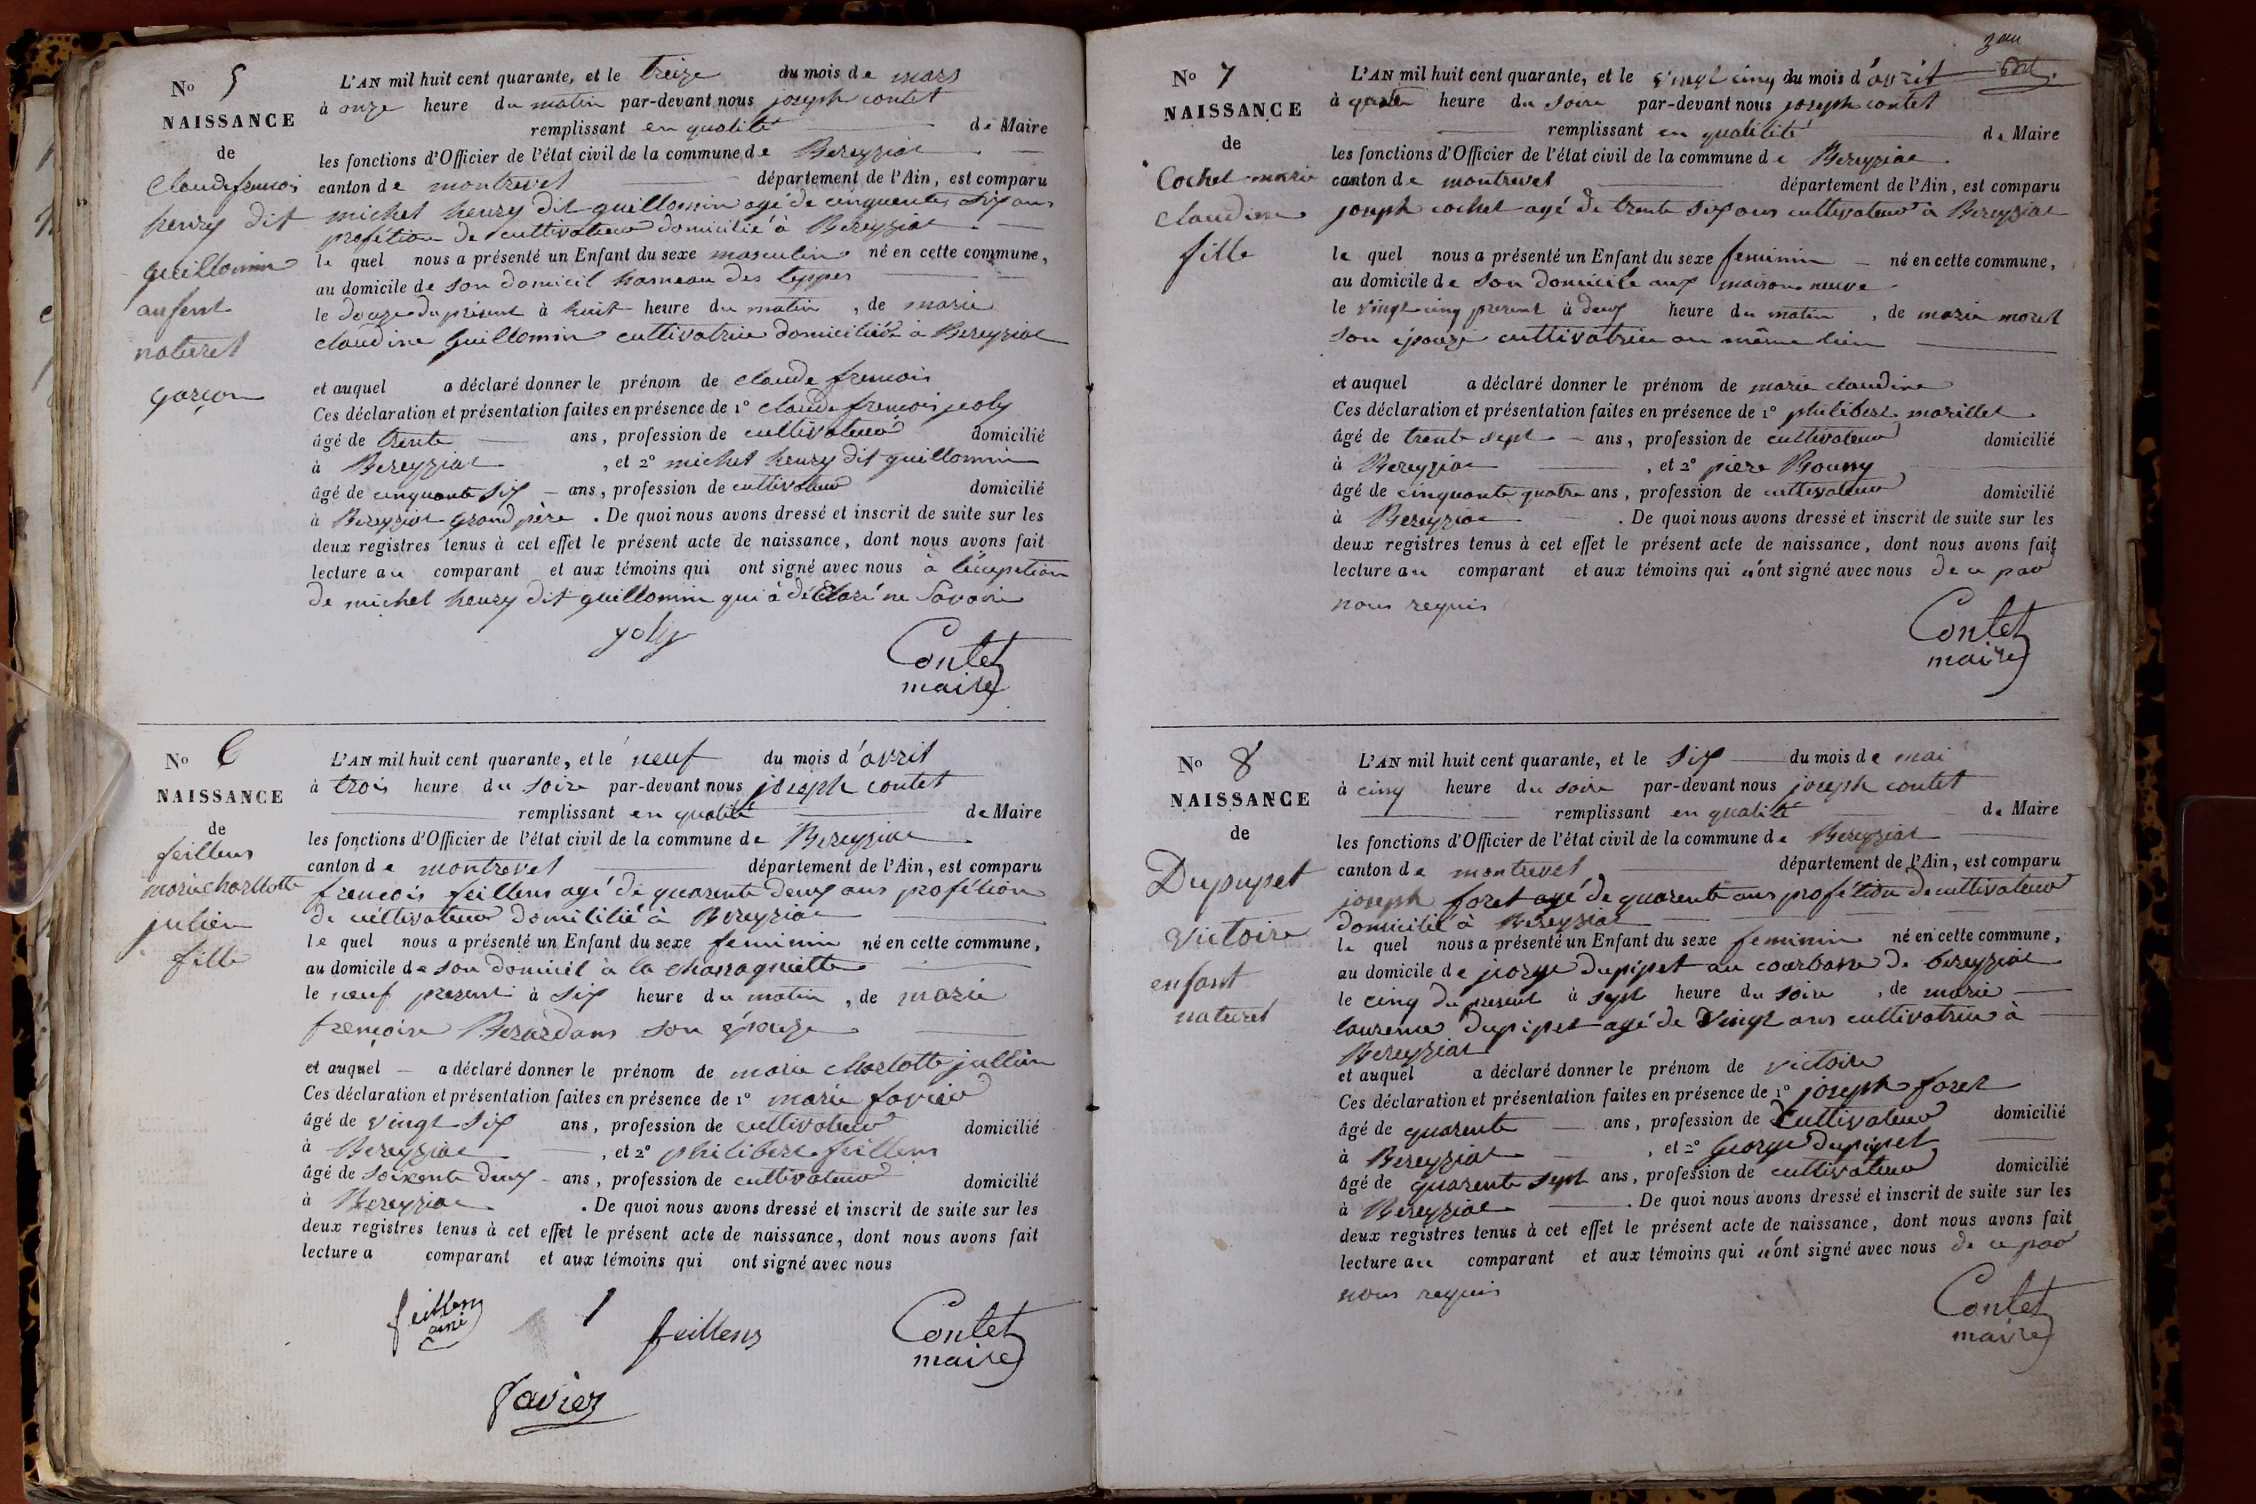 No 5
NAISSANCE
de
Claude frencois
henry dit
guillomin
anfent
naturel
garçon
L'AN mil huit cent quarante, et le treize du mois de mars
à onze heure du matin par-devant nous joseph contet
remplissant en qualité de Maire
les fonctions d'Officier de l'état civil de la commune de Bereyziat
canton de montrevel département de l'Ain, est comparu
michel henry dit guillomin agé de cinquente six ans
profétion de cultivateur domicilié à Bereyziat
le quel nous a présenté un Enfant du sexe masculin né en cette commune,
au domicile de son domicil hameau des teppes
le douze du présent à huit heure du matin, de marie
claudine guillomin cultivatrice domiciliée a Bereyziat
et auquel a déclaré donner le prénom de claude frencois
Ces déclaration et présentation faites en présence de 1º claude frencois joly
âgé de trente ans, profession de cultivateur domicilié
à Bereyziat, et 2º michel henry dit guillomin
âgé de cinquante six ans, profession de cultivateur domicilié
à Bereyziat grand père. De quoi nous avons dressé et inscrit de suite sur les
deux registres tenus à cet effet le présent acte de naissance, dont nous avons fait
lecture au comparant et aux témoins qui ont signé avec nous à l'éxeption
de michel henry dit guillomin qui à déclaré ne Savoir
joly
Contet
maire
No 6
NAISSANCE
de
feillens
marie charllotte
julien
fille
L'AN mil huit cent quarante, et le neuf du mois d'avril
à trois heure du soire par-devant nous joseph contet
remplissant en qualité de Maire
les fonctions d'Officier de l'état civil de la commune de Bereyziat
canton de montrevel département de l'Ain, est comparu
frencois feillens agé de quarente deux ans profétion
de cultivateur domilitié à Bereyziat
le quel nous a présenté un Enfant du sexe feminin né en cette commune,
au domicile de son domicil à la charragniette
le neuf present à six heure du matin, de marie
frençoise Berardans son épouze
et auquel a déclaré donner le prénom de marie charlotte jullien
Ces déclaration et présentation faites en présence de 1º marie favier
âgé de vingt six ans, profession de cultivateur domicilié
à Bereyziat, et 2º philibert feillens
âgé de soixente deux ans, profession de cultivateur domicilié
à Bereyziat. De quoi nous avons dressé et inscrit de suite sur les
deux registres tenus à cet effet le présent acte de naissance, dont nous avons fait
lecture a comparant et aux témoins qui ont signé avec nous
feillens
ainé
feillens
Contet
maire
favier
No 7
NAISSANCE
de
Cochet marie
claudine
fille
L'AN mil huit cent quarante, et le vingt cinq du mois d'avril
à quatre heure du soire par-devant nous joseph contet
remplissant en qualilité de Maire
les fonctions d'Officier de l'état civil de la commune de Bereyziat
canton de montrevel département de l'Ain, est comparu
joseph cochet agé de trente six ans cultivateur à Bereyziat
le quel nous a présenté un Enfant du sexe feminin né en cette commune,
au domicile de son domicile aux maison neuve
le vingt cinq present à deux heure du matin, de marie moret
son épouze cultivatrice au même lieu
et auquel a déclaré donner le prénom de marie claudine
Ces déclaration et présentation faites en présence de 1º philibert marillet
âgé de trente sept ans, profession de cultivateur domicilié
à Bereyziat, et 2º piere Bouvry
âgé de cinquante quatre ans, profession de cultivateur domicilié
à Bereyziat. De quoi nous avons dressé et inscrit de suite sur les
deux registres tenus à cet effet le présent acte de naissance, dont nous avons fait
lecture au comparant et aux témoins qui n'ont signé avec nous de ce par
nous requis
Contet
maire
No 8
NAISSANCE
de
Dupupet
Victoire
enfant
naturel
L'AN mil huit cent quarante, et le six du mois de mai
à cinq heure du soire par-devant nous joseph contet
remplissant en qualité de Maire
les fonctions d'Officier de l'état civil de la commune de Bereyziat
canton de montrevel département de l'Ain, est comparu
joseph foret agé de quarente ans profétion de cultivateur
domicilié à Bereyziat
le quel nous a présenté un Enfant du sexe feminin né en cette commune,
au domicile de jeorge dupipet au courbare de bereyziat
le cinq du present à sept heure du soire, de marie
laurence dupipet agé de Vingt ans cultivatrice à
Bereyziat
et auquel a déclaré donner le prénom de victoire
Ces déclaration et présentation faites en présence de 1º joseph foret
âgé de quarente ans, profession de cultivateur domicilié
à Bereyziat, et 2º george dupipet
âgé de quarente sept ans, profession de cultivateur domicilié
à Bereyziat. De quoi nous avons dressé et inscrit de suite sur les
deux registres tenus à cet effet le présent acte de naissance, dont nous avons fait
lecture au comparant et aux témoins qui n'ont signé avec nous de ce par
nous requis
Contet
maire